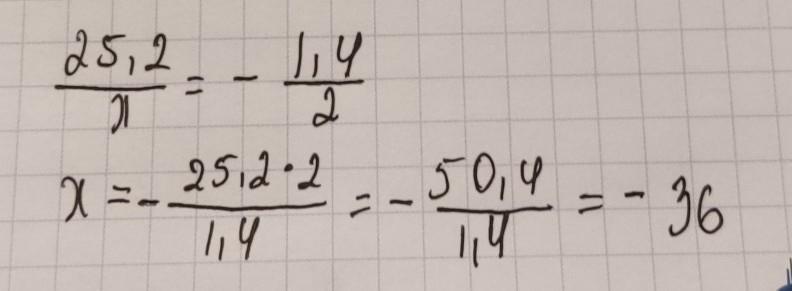 25,2/x = - 1,4/2
x = - 25,2·2/1,4 = - 50,4/1,4 = - 36